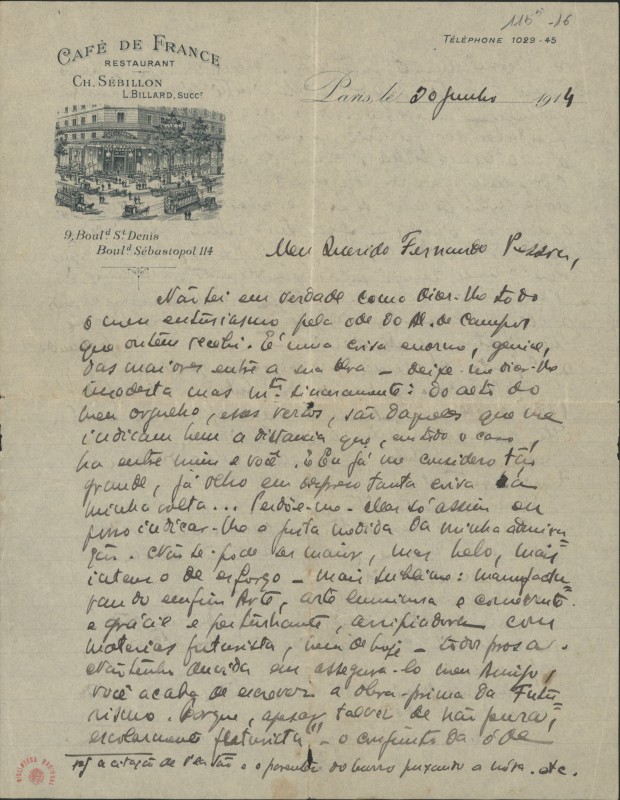 115⁵-16
TÉLÉPHONE 1029-45
CAFÉ DE FRANCE
RESTAURANT
CH. SÉBILLON
L. BILLARD, SUCCʳ
Paris, le 20 Junho 1914
9, Boulᵈ Sᵗ Denis
Boulᵈ Sébastopol 114
Meu Querido Fernando Pessoa,
Não sei em verdade como dizer-lho todo
o meu entusiasmo pela ode do Al. de Campos
que ontem recebi. É uma coisa enorme, genial,
das maiores entre a sua obra — deixe-me dizer-lho
imodesta mas mᵗᵒ sinceramente: do alto do
meu orgulho, esses versos, são daqueles que me
indicam bem a distancia que, em todo o caso,
ha entre mim e você. E eu já me considero tão
grande, já olho em desprezo tanta coisa á
minha volta... Perdõe-me. Mas só assim eu
posso indicar-lho a justa medida da minha admira=
ção. Não se pode ser maior, mais belo, mais
intenso de esforço — mais sublime: manufactu=
rando enfim Arte, arte luminosa e comovente
e grácil e perturbante, arripiadora com
materias futurista, bem de hoje — todo prosa.
Não tenho duvida em assegura-lo meu Amigo,
você acaba de escrever a obra-prima do Futu=
rismo. Porque, apesar talvez de não pura,
escolarmente futurista — o conjunto da ode
a citação de Platão e o parentesis do burro puxando a nora. etc.